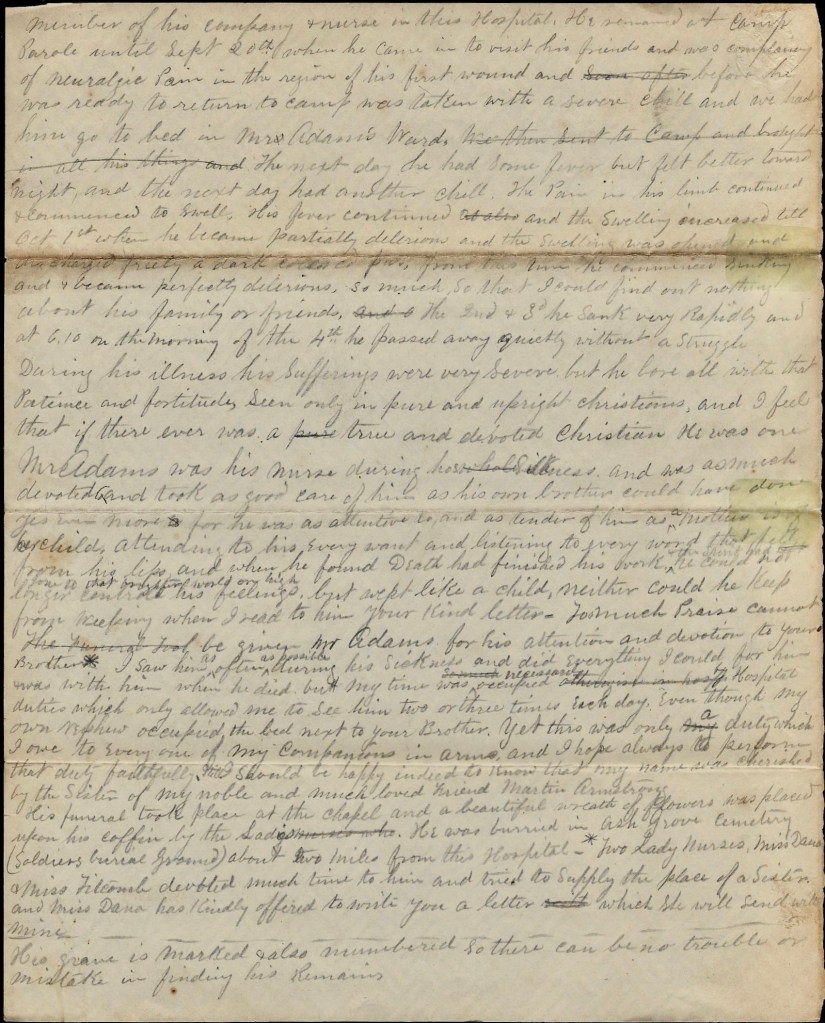 member of his company & nurse in this Hospital. He remained at Camp
Parole until Sept 20th when he came in to visit his friends and was complaining
of neuralgic Pain in the region of his first wound and Soon after before he
was ready to return to camp was taken with a severe chill and we had
him go to bed in Mr Adams Ward. We then Sent to Camp and brought
in all his things and The next day he had Some fever but felt better toward
night, and the next day had another chill. The Pain in his limb continued
& commenced to Swell, His fever continued and the Swelling increased till
Oct 1st when he became partially delirious and the Swelling was opened and
discharged freely a dark colored pus, from this time he commenced Sinking
and & became perfectly delirious, So much So that I could find out nothing
about his family or friends, The 2nd & 3d he Sank very Rapidly and
at 6.10 on the morning of the 4th he passed away quietly without a Struggle
During his illness his Sufferings were very Severe but he bore all with that
Patience and fortitude, Seen only in pure and upright christians, and I feel
that if there ever was a pure true and devoted Christian He was one
Mr Adams was his nurse during his Sickness, and was as much
devoted and took as good care of him as his own brother could have done
yes Even more for he was as attentive to, and as tender of him as a Mother is of
her child, attending to his Every want and listening to every word that fell
from his lips, and when he found Death had finished his work, he could not
longer control his feelings, but wept like a child, neither could he Keep
from Weeping when I read to him your Kind letter – To much Praise cannot
The Funeral took be given Mr Adams for his attention and devotion to your
Brother * I Saw him as often as possible during his Sickness and did Everything I could for him
& was with him when he died, but my time was necessarily occupied Hospital
duties which only allowed me to See him two or three times Each day. Even though my
own Nephew occupied the bed next to your Brother. Yet this was only my a duty which
I owe to Every one of my Companions in arms, and I hope always to perform
that duty faithfully, Should be happy indeed to Know that my name was cherished
by the Sister of my noble and much loved Friend Martin Armstrong
His funeral took place at the chapel and a beautiful wreath of flowers was placed
upon his coffin by the Lady nurses who. He was burried in Ash Grove Cemetery
(Soldiers burial Ground) about two miles from this Hospital – * Two Lady Nurses, Miss Dana
& Miss Titcomb devoted much time to him and tried to Supply the place of a Sister
and Miss Dana has Kindly offered to write you a letter which She will Send with
mine
His grave is marked & also numbered So there can be no trouble or
mistake in finding his Remains